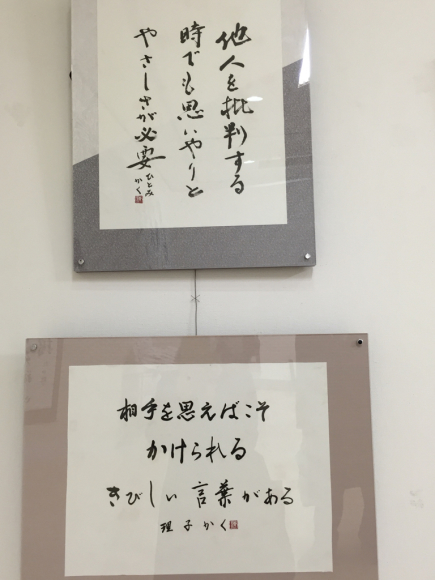 他人を批判する
時でも思いやりと
やさしさが必要
ひとみ
かく
相手を思えばこそ
かけられる
きびしい言葉がある
理子かく